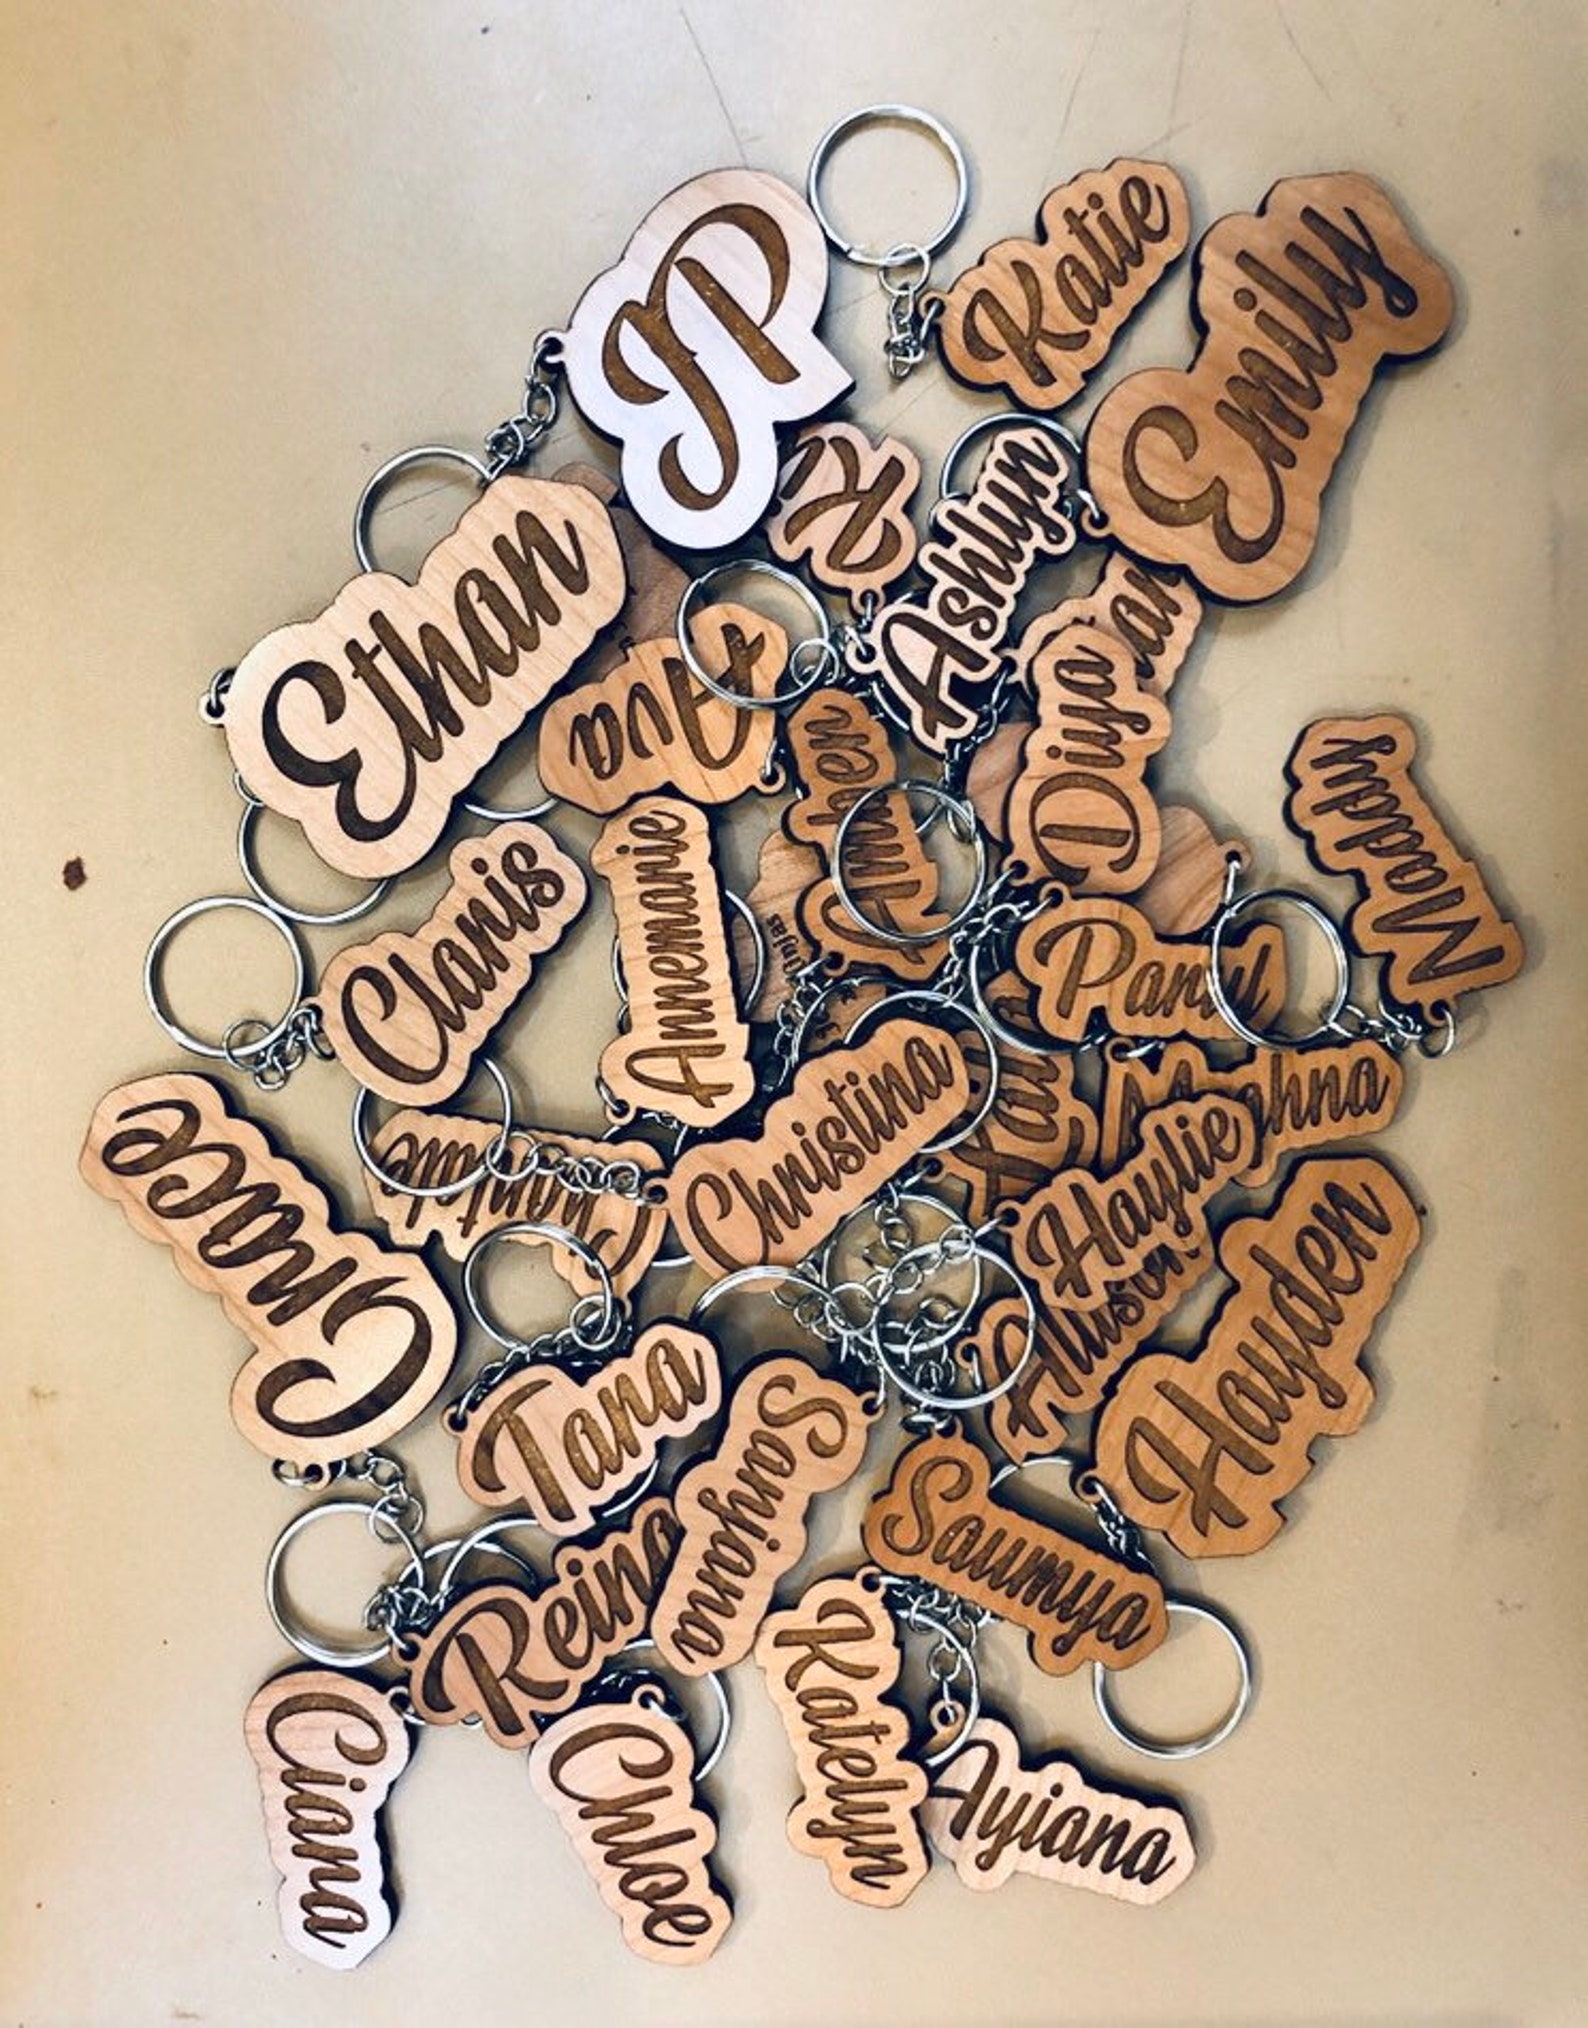 JP
Katie
Emily
Ethan
Ashlyn
Ava
Diya
Maddy
Claris
Annemarie
Amber
Parry
Christina
Grace
Haylie
Allison
Hayden
Tara
Sanjana
Saumya
Reina
Katelyn
Ciana
Chloe
Ayiana